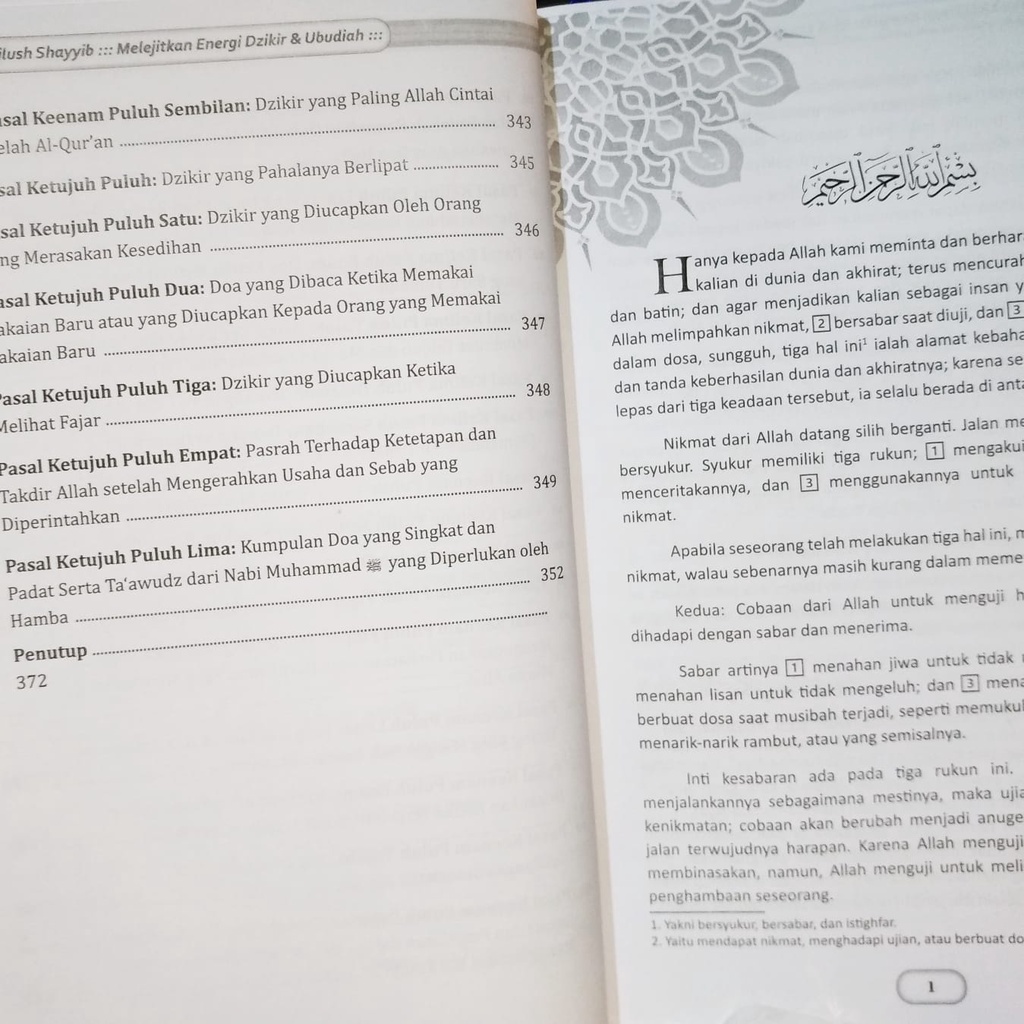 ilush Shayyib ::: Melejitkan Energi Dzikir & Ubudiah :::
asal Keenam Puluh Sembilan: Dzikir yang Paling Allah Cintai
elah Al-Qur'an ........ 343
sal Ketujuh Puluh: Dzikir yang Pahalanya Berlipat ........ 345
sal Ketujuh Puluh Satu: Dzikir yang Diucapkan Oleh Orang
ng Merasakan Kesedihan ........ 346
asal Ketujuh Puluh Dua: Doa yang Dibaca Ketika Memakai
akaian Baru atau yang Diucapkan Kepada Orang yang Memakai
akaian Baru ........ 347
Pasal Ketujuh Puluh Tiga: Dzikir yang Diucapkan Ketika
Melihat Fajar ........ 348
Pasal Ketujuh Puluh Empat: Pasrah Terhadap Ketetapan dan
Takdir Allah setelah Mengerahkan Usaha dan Sebab yang
Diperintahkan ........ 349
Pasal Ketujuh Puluh Lima: Kumpulan Doa yang Singkat dan
Padat Serta Ta'awudz dari Nabi Muhammad ﷺ yang Diperlukan oleh
Hamba ........ 352
Penutup ........
372
بسم الله الرحمن الرحيم
Hanya kepada Allah kami meminta dan berhar
kalian di dunia dan akhirat; terus mencurah
dan batin; dan agar menjadikan kalian sebagai insan y
Allah melimpahkan nikmat, 2 bersabar saat diuji, dan 3
dalam dosa, sungguh, tiga hal ini¹ ialah alamat kebaha
dan tanda keberhasilan dunia dan akhiratnya; karena se
lepas dari tiga keadaan tersebut, ia selalu berada di anta
Nikmat dari Allah datang silih berganti. Jalan me
bersyukur. Syukur memiliki tiga rukun; 1 mengakui
menceritakannya, dan 3 menggunakannya untuk
nikmat.
Apabila seseorang telah melakukan tiga hal ini, m
nikmat, walau sebenarnya masih kurang dalam meme
Kedua: Cobaan dari Allah untuk menguji h
dihadapi dengan sabar dan menerima.
Sabar artinya 1 menahan jiwa untuk tidak
menahan lisan untuk tidak mengeluh; dan 3 mena
berbuat dosa saat musibah terjadi, seperti memukul
menarik-narik rambut, atau yang semisalnya.
Inti kesabaran ada pada tiga rukun ini.
menjalankannya sebagaimana mestinya, maka ujia
kenikmatan; cobaan akan berubah menjadi anuge
jalan terwujudnya harapan. Karena Allah menguji
membinasakan, namun, Allah menguji untuk meli
penghambaan seseorang.
1. Yakni bersyukur, bersabar, dan istighfar.
2. Yaitu mendapat nikmat, menghadapi ujian, atau berbuat do
1